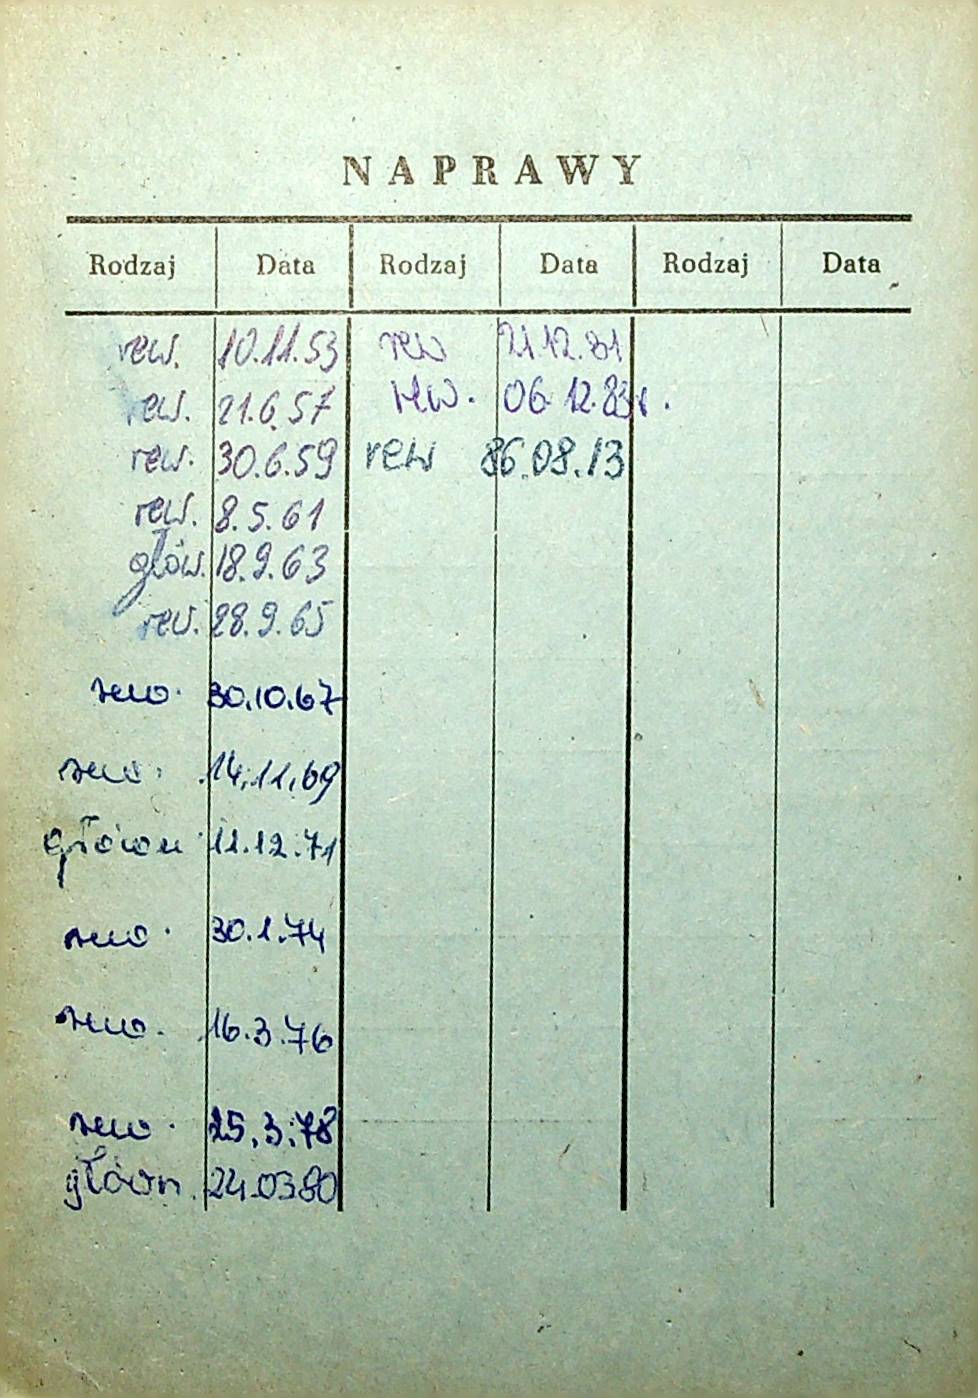 NAPRAWY
Rodzaj Data Rodzaj Data Rodzaj Data
rew. 10.11.53 rew 21.12.81
rew. 21.6.57 rew. 06.12.83r.
rew. 30.6.59 rew 86.08.13
rew. 8.5.61
głów. 18.9.63
rew. 28.9.65
rew. 30.10.67
rew. 14.11.69
główn 11.12.71
rew. 30.1.74
rew. 16.3.76
rew. 25.3.78
główn. 24.03.80